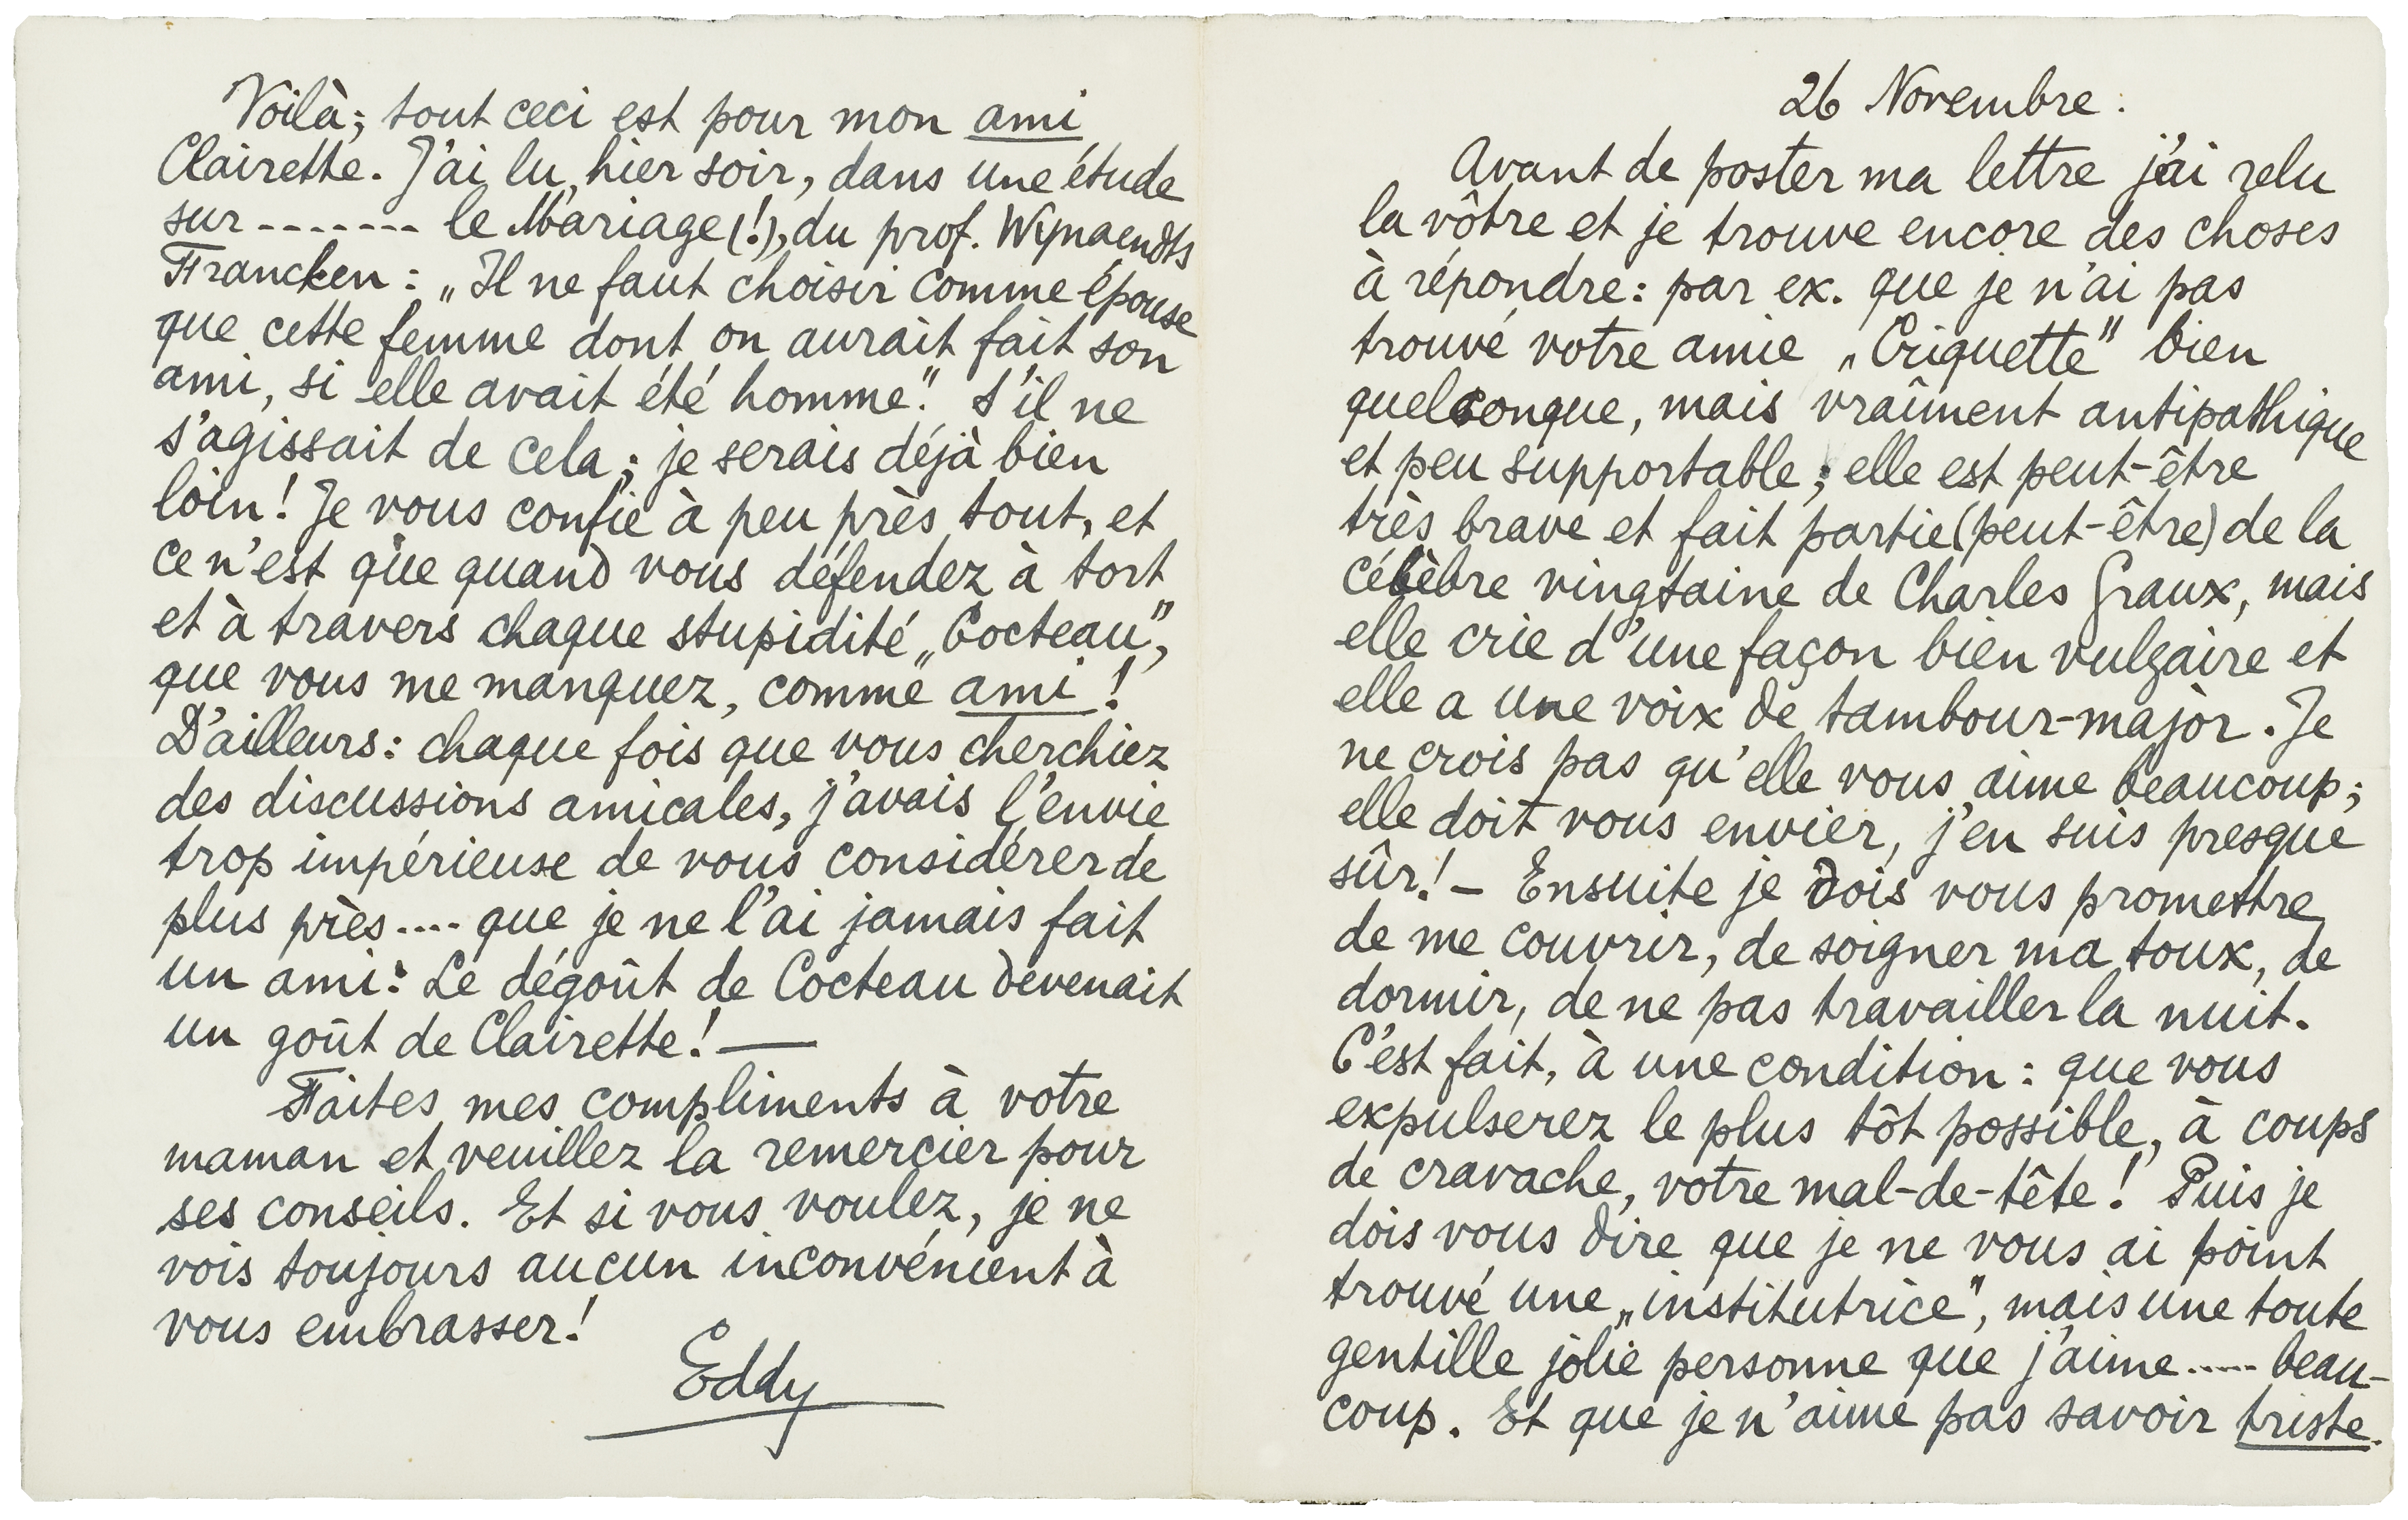 Voilà; tout ceci est pour mon ami
Clairette. J'ai lu, hier soir, dans une étude
sur ------- le Mariage(!), du prof. Wynaendts
Francken: „Il ne faut choisir comme épouse
que cette femme dont on aurait fait son
ami, si elle avait été homme." S'il ne
s'agissait de cela; je serais déjà bien
loin! Je vous confie à peu près tout, et
ce n'est que quand vous défendez à tort
et à travers chaque stupidité „Cocteau",
que vous me manquez, comme ami!
D'ailleurs: chaque fois que vous cherchiez
des discussions amicales, j'avais l'envie
trop impérieuse de vous considérer de
plus près.... que je ne l'ai jamais fait
un ami: Le dégoût de Cocteau devenait
un goût de Clairette! —
Faites mes compliments à votre
maman et veuillez la remercier pour
ses conseils. Et si vous voulez, je ne
vois toujours aucun inconvénient à
vous embrasser!
Eddy
26 Novembre.
Avant de poster ma lettre j'ai relu
la vôtre et je trouve encore des choses
à répondre: par ex. que je n'ai pas
trouvé votre amie „Criquette" bien
quelconque, mais vraîment antipathique
et peu supportable; elle est peut-être
très brave et fait partie (peut-être) de la
célèbre vingtaine de Charles Graux, mais
elle crie d'une façon bien vulgaire et
elle a une voix de tambour-major. Je
ne crois pas qu'elle vous aime beaucoup;
elle doit vous envier, j'en suis presque
sûr! — Ensuite je dois vous promettre
de me couvrir, de soigner ma toux, de
dormir, de ne pas travailler la nuit.
C'est fait, à une condition: que vous
expulserez le plus tôt possible, à coups
de cravache, votre mal-de-tête! Puis je
dois vous dire que je ne vous ai point
trouvé une „institutrice", mais une toute
gentille jolie personne que j'aime..... beau-
coup. Et que je n'aime pas savoir triste.